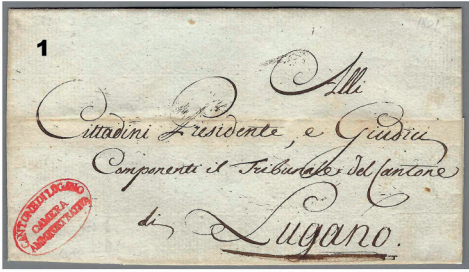 1801
1
Alli
Cittadini Presidente, e Giudici
Componenti il Tribunale del Cantone
di Lugano.
CANTONE DI LUGANO
CAMERA
AMMINISTRATIVA